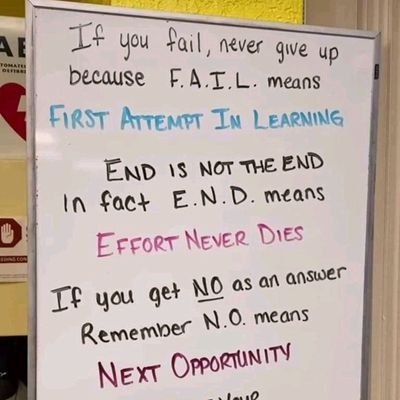 If you fail, never give up
because F.A.I.L. means
FIRST ATTEMPT IN LEARNING
END IS NOT THE END
In fact E.N.D. means
EFFORT NEVER DIES
If you get NO as an answer
Remember N.O. means
NEXT OPPORTUNITY